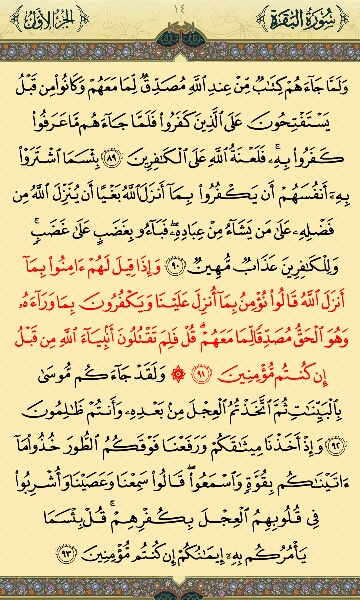 سُورَةُ البَقَرَة ١٤ الجُزءُ الأوَّلُ
وَلَمَّا جَآءَهُمْ كِتَٰبٌ مِّنْ عِندِ ٱللَّهِ مُصَدِّقٌ لِّمَا مَعَهُمْ وَكَانُوا۟ مِن قَبْلُ
يَسْتَفْتِحُونَ عَلَى ٱلَّذِينَ كَفَرُوا۟ فَلَمَّا جَآءَهُم مَّا عَرَفُوا۟
كَفَرُوا۟ بِهِۦ ۚ فَلَعْنَةُ ٱللَّهِ عَلَى ٱلْكَٰفِرِينَ ﴿٨٩﴾ بِئْسَمَا ٱشْتَرَوْا۟
بِهِۦٓ أَنفُسَهُمْ أَن يَكْفُرُوا۟ بِمَآ أَنزَلَ ٱللَّهُ بَغْيًا أَن يُنَزِّلَ ٱللَّهُ مِن
فَضْلِهِۦ عَلَىٰ مَن يَشَآءُ مِنْ عِبَادِهِۦ ۖ فَبَآءُو بِغَضَبٍ عَلَىٰ غَضَبٍ ۚ
وَلِلْكَٰفِرِينَ عَذَابٌ مُّهِينٌ ﴿٩٠﴾ وَإِذَا قِيلَ لَهُمْ ءَامِنُوا۟ بِمَآ
أَنزَلَ ٱللَّهُ قَالُوا۟ نُؤْمِنُ بِمَآ أُنزِلَ عَلَيْنَا وَيَكْفُرُونَ بِمَا وَرَآءَهُۥ
وَهُوَ ٱلْحَقُّ مُصَدِّقًا لِّمَا مَعَهُمْ ۗ قُلْ فَلِمَ تَقْتُلُونَ أَنۢبِيَآءَ ٱللَّهِ مِن قَبْلُ
إِن كُنتُم مُّؤْمِنِينَ ﴿٩١﴾ ۞ وَلَقَدْ جَآءَكُم مُّوسَىٰ
بِٱلْبَيِّنَٰتِ ثُمَّ ٱتَّخَذْتُمُ ٱلْعِجْلَ مِنۢ بَعْدِهِۦ وَأَنتُمْ ظَٰلِمُونَ
﴿٩٢﴾ وَإِذْ أَخَذْنَا مِيثَٰقَكُمْ وَرَفَعْنَا فَوْقَكُمُ ٱلطُّورَ خُذُوا۟ مَآ
ءَاتَيْنَٰكُم بِقُوَّةٍ وَٱسْمَعُوا۟ ۖ قَالُوا۟ سَمِعْنَا وَعَصَيْنَا وَأُشْرِبُوا۟
فِى قُلُوبِهِمُ ٱلْعِجْلَ بِكُفْرِهِمْ ۚ قُلْ بِئْسَمَا
يَأْمُرُكُم بِهِۦٓ إِيمَٰنُكُمْ إِن كُنتُم مُّؤْمِنِينَ ﴿٩٣﴾